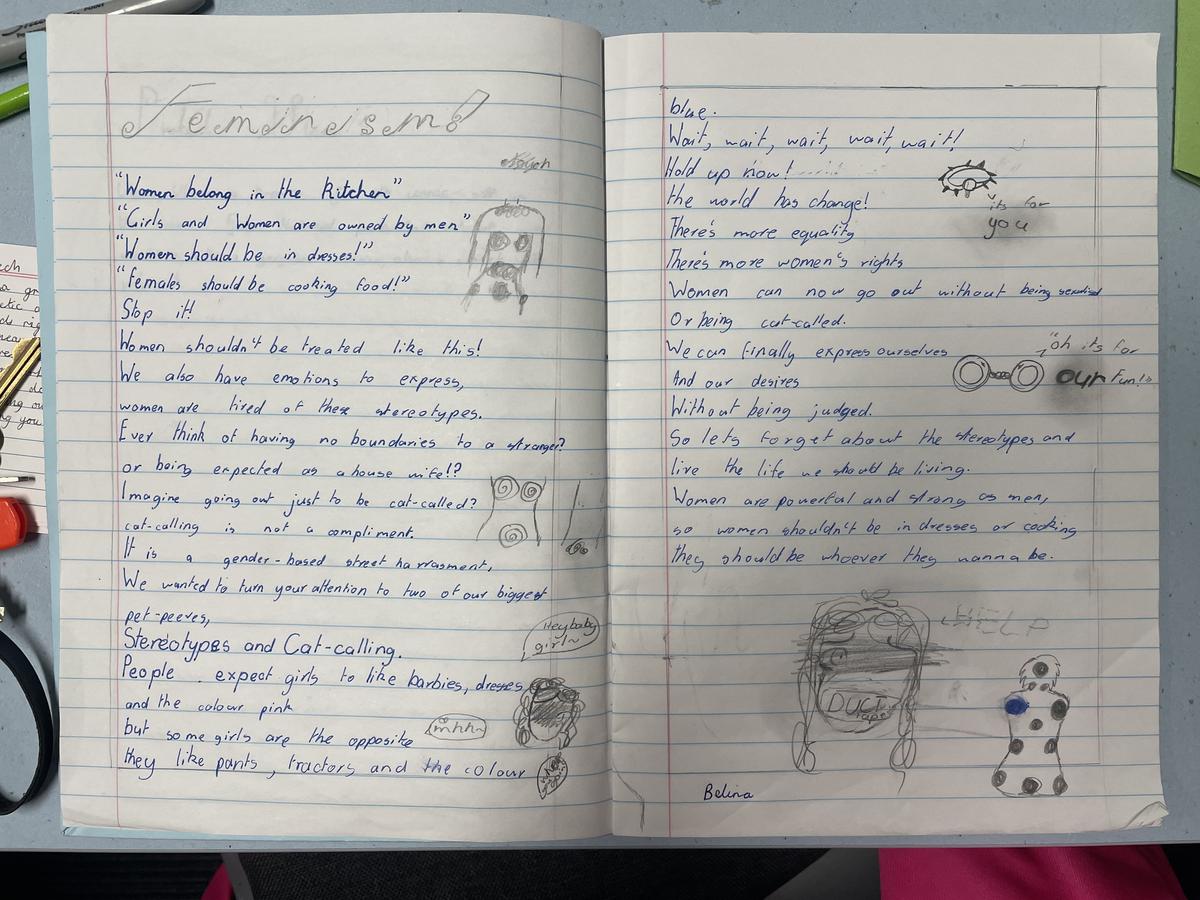 Feminism!
"Women belong in the kitchen"
"Girls and Women are owned by men"
"Women should be in dresses!"
"Females should be cooking food!"
Stop it!
Women shouldn't be treated like this!
We also have emotions to express,
women are tired of these stereotypes.
Ever think of having no boundaries to a stranger?
or being expected as a house wife!?
Imagine going out just to be cat-called?
cat-calling is not a compliment.
It is a gender-based street harrasment,
We wanted to turn your attention to two of our biggest
pet-peeves,
Stereotypes and Cat-calling.
Hey baby
girl~
People expect girls to like barbies, dresses
and the colour pink
mhhn
but some girls are the opposite
they like pants, tractors and the colour
blue.
Wait, wait, wait, wait, wait!
Hold up now!
the world has change!
"its for
you
There's more equality
There's more women's rights
Women can now go out without being sexulised
Or being cat-called.
We can finally express ourselves
"oh its for
our fun!"
And our desires
Without being judged.
So lets forget about the stereotypes and
live the life we should be living.
Women are powerful and strong as men,
so women shouldn't be in dresses or cooking
they should be whoever they wanna be.
HELP
DUCT
tape
Belina